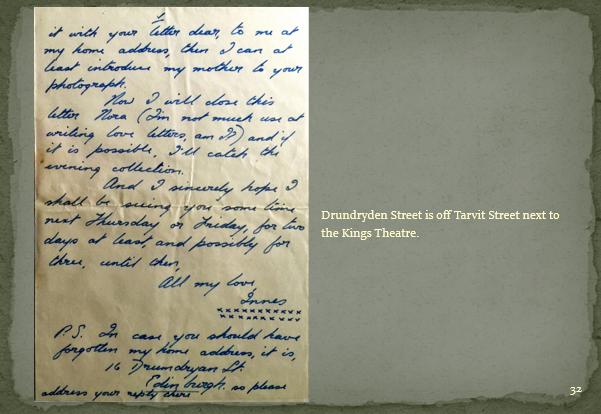 it with your letter dear, to me at
my home address, then I can at
least introduce my mother to your
photograph.
Now I will close this
letter Nora (I'm not much use at
writing love letters, am I?) and if
it is possible, I'll catch the
evening collection.
And I sincerely hope I
shall be seeing you some time
next Thursday or Friday, for two
days at least, and possibly for
three, until then,
All my love,
Innes
x x x x x x x x x x x
x x x x x x x x x x x
P.S. In case you should have
forgotten my home address, it is,
16 Drumdryan St.
Edinburgh. so please
address your reply there
Drundryden Street is off Tarvit Street next to
the Kings Theatre.
32